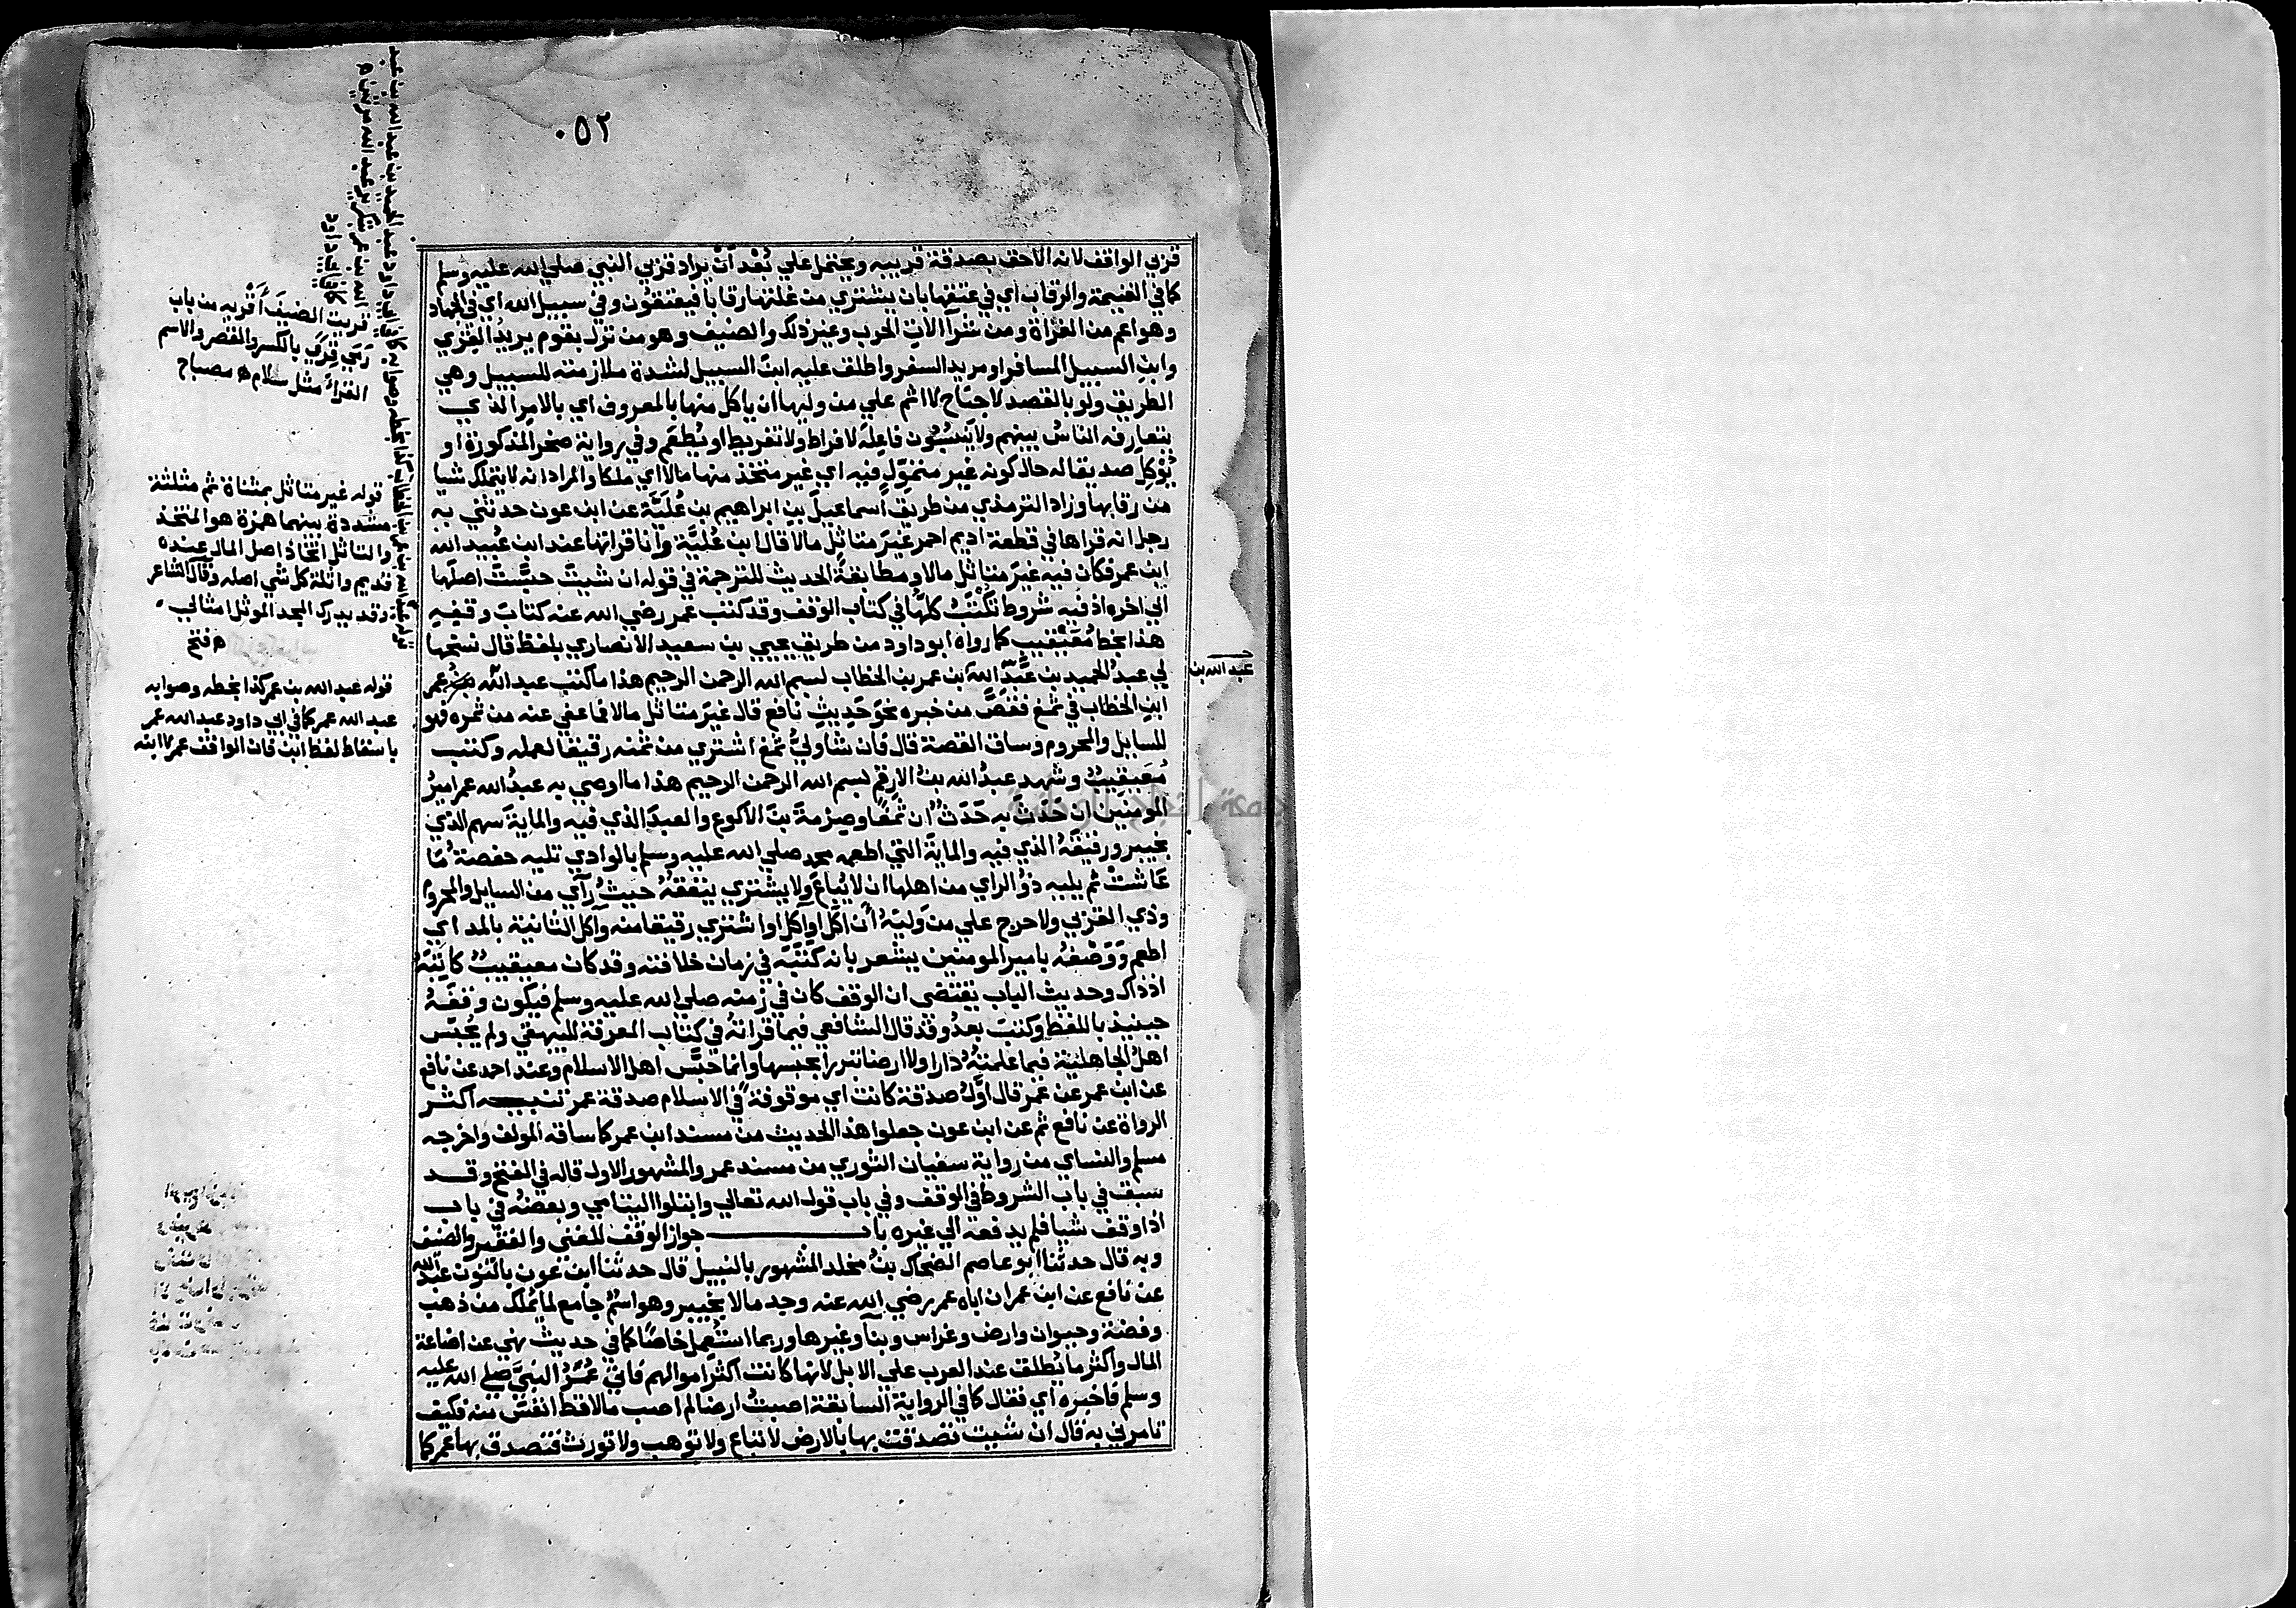 ٠٥٢
قربي الواقف لانه الاحق بصدقة قريبه ويحتمل علي بُعْد أنْ يراد قربي النبي صلي الله عليه وسلم
كما في الغنيمة والرقاب اي في عتقها بان يشتري من غلتها رقابا فيعتقون وفي سبيل الله اي في الجهاد
وهو اعم من الغزاة ومن شرآ الات الحرب وغير ذلك والضيف وهو من نزل بقوم يريد القري
وابن السبيل المسافر او مريد السفر واطلق عليه ابن السبيل لشدة ملازمته للسبيل وهي
الطريق ولو بالقصد لا جناح لا اثم علي من وليها ان ياكل منها بالمعروف اي بالامر الذي
يتعارفه الناسُ بينهم ولا ينسبون فاعله لافراط ولا تفريط او يُطعم وفي رواية صخر المذكورة او
يُوكل صديقا له حال كونه غير متموّل فيه اي غير متخذ منها مالا اي ملكا والمراد انه لا يتملك شيا
من رقابها وزاد الترمذي من طريق اسماعيل بن ابراهيم بن عُلَيَّة عن ابن عون حدثني به
رجل انه قراها في قطعة اديم احمر غيرَ متاثل مالا قال ابن عُليَّة وأنا قراتها عند ابن عُبيد الله
ابن عمر فكان فيه غيرَ متاثل مالا ومطابقةُ الحديث للترجمة في قوله ان شيتَ حبَّستَ اصلَها
الي اخره اذ فيه شروط تُكتَبُ كلها في كتاب الوقف وقد كتب عمر رضي الله عنه كتابَ وقفِهِ
هذا بخط مُعَيْقيب كما رواه ابو داود من طريق يحيي بن سعيد الانصاري بلفظ قال نسخها
لي عبد الحميد بن عبد الله بن عمر بن الخطاب بسم الله الرحمن الرحيم هذا ما كتب عبد الله بن عمر
ابن الخطاب في ثمغ فقصَّ من خبره نحوَ حديثِ نافع قال غيرَ متاثل مالا فما عفي عنه من ثمره فهو
للسايل والمحروم وساق القصة قال فان شا وليُّ ثمغ اشتري من ثمنه رقيقا لعمله وكتب
مُعَيقيبٌ وشهد عبدُ الله بنُ الارقم بسم الله الرحمن الرحيم هذا ما اوصي به عبدُ الله عمر اميرُ
المومنين ان حَدَثَ به حَدَثٌ ان ثمغًا وصِرْمةَ بنَ الاكوع والعبدَ الذي فيه والمايةَ سهم الذي
بخيبر ورقيقَهُ الذي فيه والمايةَ التي اطعمه محمد صلي الله عليه وسلم بالوادي تليه حفصةُ ما
عَاشتْ ثم يليه ذوُ الراي من اهلها ان لا يُباعَ ولا يشتري ينفقهُ حيثُ رآي من السايل والمحروم
وذي القربي ولا حرج علي من وليه أن اكل او آكل او اشتري رقيقا منه وآكل الثانية بالمد اي
اطعم ووَصْفهُ بامير المومنين يشعر بانه كَتَبَه في زمان خلافته وقد كان معيقيبٌ كاتبَهُ
اذ ذاك وحديث الباب يقتضي ان الوقف كان في زمنه صلي الله عليه وسلم فيكون وقفَهُ
حينيذ باللفظ وكتبَ بعدُ وقد قال الشافعي فيما قراتهُ في كتاب المعرفة للبيهقي ولم يُحبّس
اهلُ الجاهلية فيما علمتُهُ دارا ولا ارضا تبررا بحبسها وانما حَبَّسَ اهل الاسلام وعند احمد عن نافع
عن ابن عمر عن عُمر قال اوّلُ صدقة كانت اي موقوفة في الاسلام صدقة عمر تنبيه اكثر
الرواة عن نافع ثم عن ابن عون جعلوا هذا الحديث من مسند ابن عمر كما ساقه المولف واخرجه
مسلم والنساي من رواية سفيان الثوري من مسند عمر والمشهور الاول قاله في الفتح وقد
سبق في باب الشروط في الوقف وفي باب قول الله تعالي وابتلوا اليتامي وبعضهُ في باب
اذا وقف شيا فلم يدفعه الي غيره باب جواز الوقف للغني والفقير والضيف
وبه قال حدثنا ابو عاصم الضحاك بنُ مخلد المشهور بالنبيل قال حدثنا ابن عون بالنون عبد الله
عن نافع عن ابن عمر ان اباه عمر رضي الله عنه وجد مالا بخيبر وهو اسمٌ جامع لما يُملك من ذهب
وفضة وحيوان وارض وغراس وبنآ وغيرها وربما استُعمل خاصًا كما في حديث نهي عن اضاعة
المال واكثر ما يُطلق عند العرب علي الابل لانها كانت اكثر اموالهم فاتي عُمَرُ النبيَّ صلي الله عليه
وسلم فاخبره اي فقال كما في الرواية السابقة اصبتُ ارضا لم اصب مالا قط انفسَ منه فكيف
تامرني به قال ان شيت تصدقت بها بالارض لا تباع ولا توهب ولا تورث فتصدق بها عمر كما
عبد الله بن
قريت الضيفَ أَقْريه من باب
رَمَي قِرًي بالكسر والقصر والاسم
القراءُ مثل سلام ه مصباح
قوله غير متاثل بمثناة ثم مثلثة
مشددة بينهما همزة هو المتخذ
والتاثل اتخاذ اصل المال عنده
قديم واثلة كل شي اصله وقال الشاعر
وقد يدرك المجد الموثل امثالي
ه فتح
قوله عبد الله بن عمر كذا بخطه وصوابه
عبد الله عمر كما في ابي داود عبد الله عمر
باسقاط لفظ ابن فان الواقف عمر لا ابنه